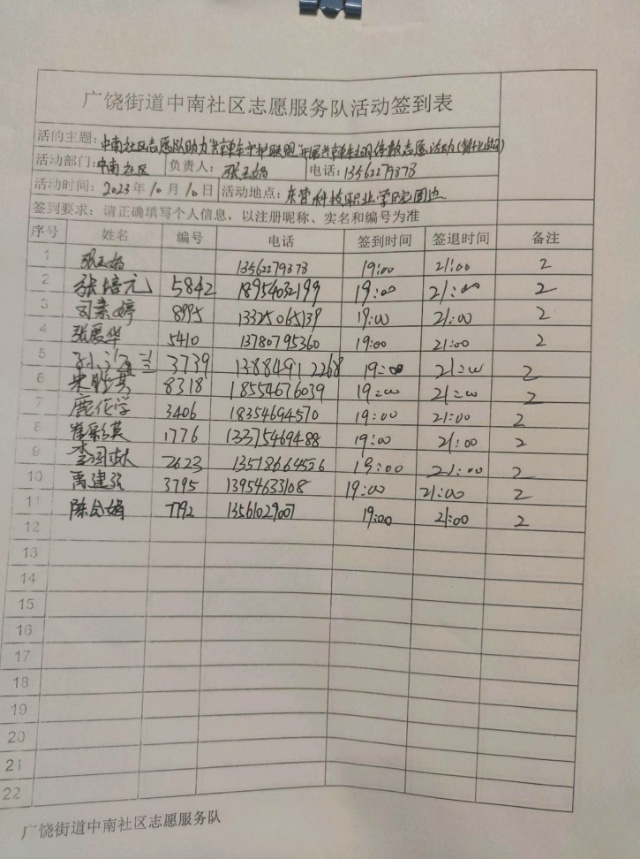 广饶街道中南社区志愿服务队活动签到表
活动主题：中南社区志愿队助力 志愿活动
活动部门：中南社区 负责人：张玉娟 电话：13562279373
活动时间：2023年10月10日 活动地点：东营科技职业学院周边
签到要求：请正确填写个人信息，以注册昵称、实名和编号为准
序号 姓名 编号 电话 签到时间 签退时间 备注
1 13562279373 19:00 21:00 2
2 张培元 5842 18954032199 19:00 21:00 2
3 刘素婷 8995 13325065139 19:00 21:00 2
4 张爱华 5410 13780795360 19:00 21:00 2
5 3739 13884912268 19:00 21:00 2
6 8318 18554676039 19:00 21:00 2
7 3406 18354694570 19:00 21:00 2
8 崔彩英 1776 13375469488 19:00 21:00 2
9 2623 13518664556 19:00 21:00 2
10 3795 13954633108 19:00 21:00 2
11 陈 娟 7792 13561029007 19:00 21:00 2
12
13
14
15
16
17
18
19
20
21
22
广饶街道中南社区志愿服务队